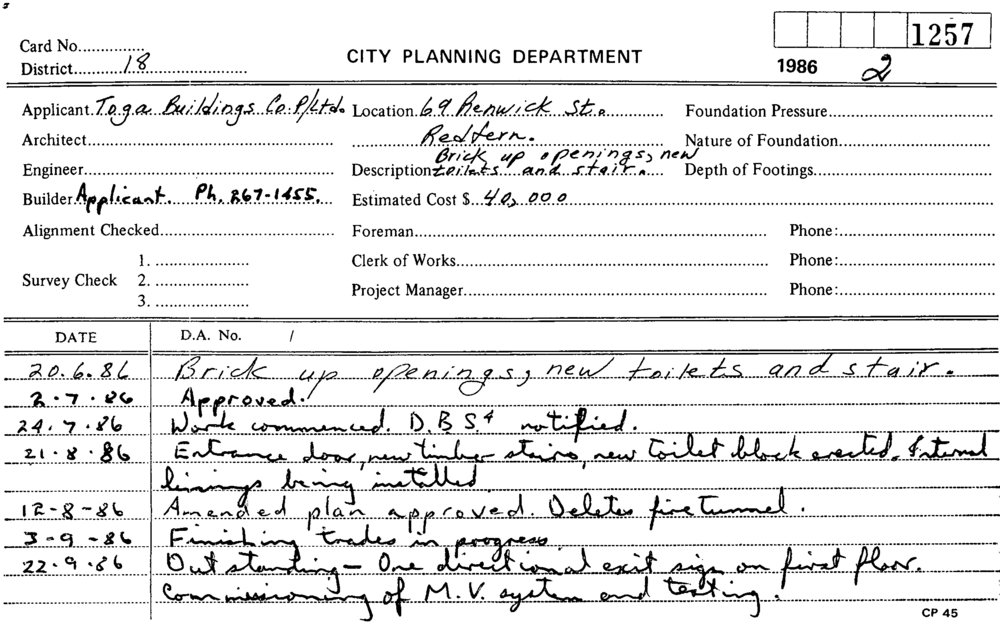 Card No...............
1257
District.............18.....................
CITY PLANNING DEPARTMENT
1986 2
Applicant Toga Buildings Co. P/Ltd. Location 69 Renwick St. Foundation Pressure
Architect Redfern. Nature of Foundation
Engineer Description Brick up openings, new toilets and stair. Depth of Footings
Builder Applicant. Ph. 267-1455. Estimated Cost $ 40,000
Alignment Checked Foreman Phone:
Survey Check 1. Clerk of Works Phone:
2. Project Manager Phone:
3.
DATE D.A. No. /
20.6.86 Brick up openings, new toilets and stair.
2.7.86 Approved.
24.7.86 Work commenced. D.B.S. notified.
21.8.86 Entrance door, new timber stairs, new toilet block erected. Internal
linings being installed
12-8-86 Amended plan approved. Deletes fire tunnel.
3-9-86 Finishing trades in progress
22.9.86 Outstanding - One directional exit sign on first floor.
Commissioning of M.V. system and testing.
CP 45